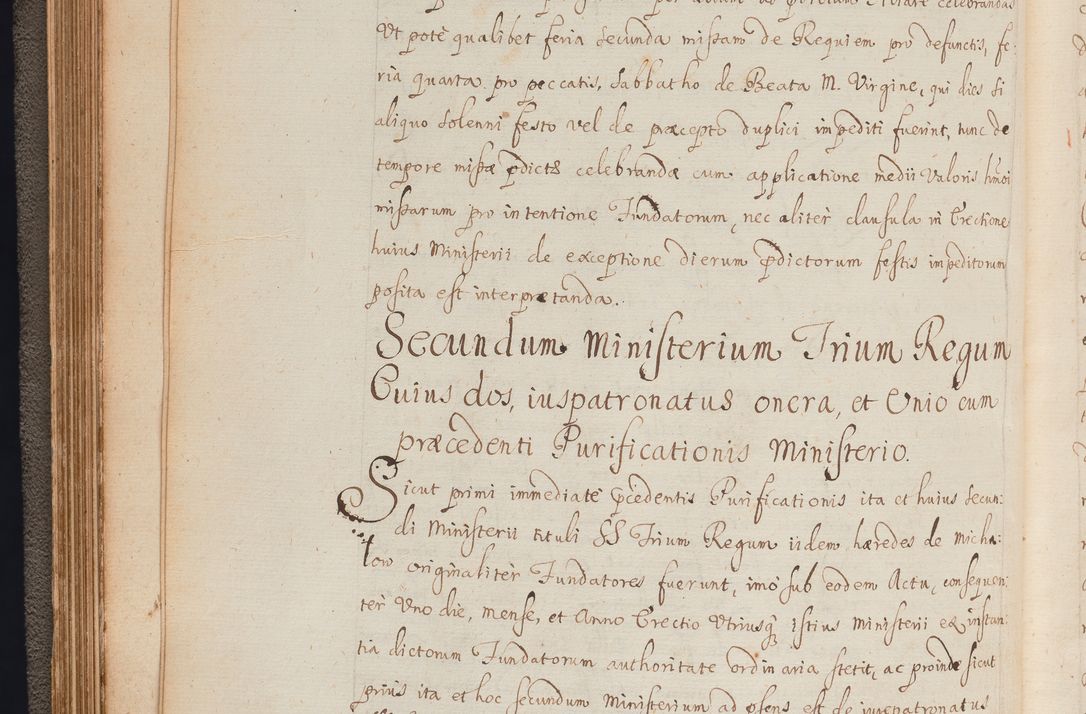 celebrandas
Ut potè qualibet feria secunda missam de Requiem pro defunctis, fe-
ria quarta pro peccatis, Sabbatho de Beata M. Virgine, qui dies si
aliquo solenni festo vel de præcepto duplici impediti fuerint, tunc de
tempore missæ pdictę celebrandæ cum applicatione medii valoris hmoi
missarum pro intentione Fundatorum, nec aliter clausula in Erectione
huius Ministerii de exceptione dierum pdictorum festis impeditorum
posita est interprætanda.
Secundum Ministerium Trium Regum
Cuius dos, iuspatronatus onera, et Unio cum
præcedenti Purificationis Ministerio.
Sicut primi immediatè pcedentis Purificationis ita et huius secun:
di Ministerii tituli SS Trium Regum iidem hæredes de Micha:
low originaliter Fundatores fuerunt, imò sub eodem Actu, consequen:
tèr Uno die, mense, et Anno Erectio Utriusq istius Ministerii ex instan:
tia dictorum Fundatorum authoritate ordinaria stetit, ac proinde sicut
priùs ita et hoc secundum Ministerium ad psens est de iurepatronatus